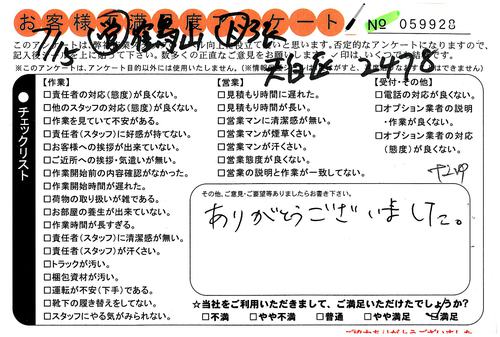 お客様満足度アンケート!
№ 059928
このアンケートは、弊社
※このアンケートは、アンケート目的以外には使用いたしません。
7/15
天白区 2478
●チェックリスト
【作業】
□責任者の対応(態度)が良くない。
□他のスタッフの対応(態度)が良くない。
□作業を見ていて不安がある。
□責任者(スタッフ)に好感が持てない。
□お客様への挨拶が出来ていない。
□ご近所への挨拶・気遣いが無い。
□作業開始前の内容確認がなかった。
□作業開始時間が遅れた。
□荷物の取り扱いが雑である。
□お部屋の養生が出来ていない。
□作業時間が長すぎる。
□責任者(スタッフ)に清潔感が無い。
□責任者(スタッフ)が汗くさい。
□トラックが汚い。
□梱包資材が汚い。
□運転が不安(下手)である。
□靴下の履き替えをしてない。
□スタッフにやる気がみられない。
【営業】
□見積もり時間に遅れた。
□見積もり時間が長い。
□営業マンに清潔感が無い。
□営業マンが煙草くさい。
□営業マンが汗くさい。
□営業態度が良くない。
□営業の説明と作業が一致してない。
【受付・その他】
□電話の対応が良くない。
□オプション業者の説明
・作業が良くない。
□オプション業者の対応
(態度)が良くない。
その他、ご意見・ご要望等ありましたらお書き下さい。
ありがとうございました。
☆当社をご利用いただきまして、ご満足いただけたでしょうか?
□不満 □やや不満 □普通 □やや満足 □満足
ご協力ありがとうございました